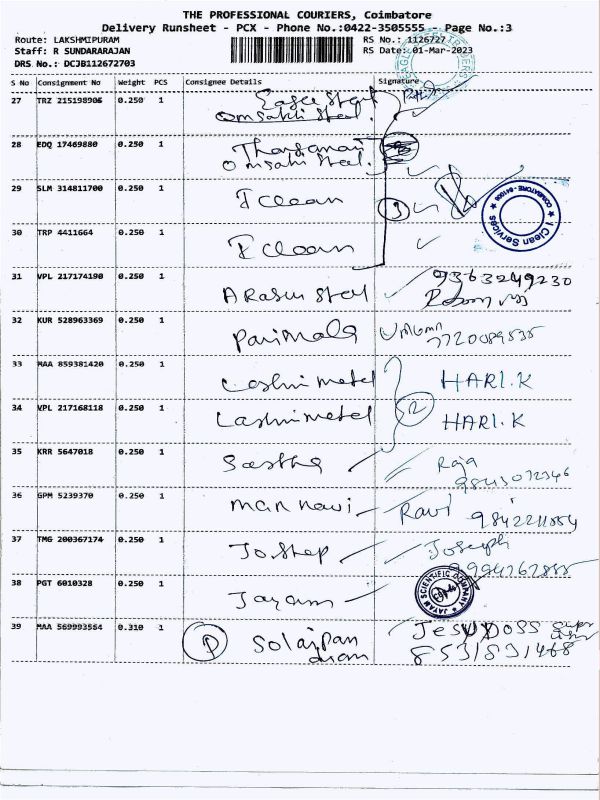 THE PROFESSIONAL COURIERS, Coimbatore
Delivery Runsheet - PCX - Phone No.:0422-3505555 - Page No.:3
Route: LAKSHMIPURAM RS No.: 1126727
Staff: R SUNDARARAJAN RS Date: 01-Mar-2023
DRS No.: DCJB112672703
S No Consignment No Weight PCS Consignee Details Signature
27 TRZ 215198906 0.250 1 Eagle Steel
Omsakthi Steel.
28 EDQ 17469880 0.250 1
Omsakthi Steel.
29 SLM 314811700 0.250 1 I Clean 3
I Clean Services COIMBATORE
30 TRP 4411664 0.250 1 I Clean
31 VPL 217174190 0.250 1 Arasu Steel 9363249230
32 KUR 528963369 0.250 1 Parimala 7720089535
33 MAA 859381420 0.250 1 Lashmi metel HARI.K
34 VPL 217168118 0.250 1 Lashmi metel 2 HARI.K
35 KRR 5647018 0.250 1 Sastha Raja
9843072346
36 GPM 5239370 0.250 1 Ravi
37 TMG 200367174 0.250 1 Joshep Joseph
38 PGT 6010328 0.250 1 Jayam
JAYAM SCIENTIFIC COMPANY
39 MAA 569993564 0.310 1 P Solaipan JESUDOSS
8531831468